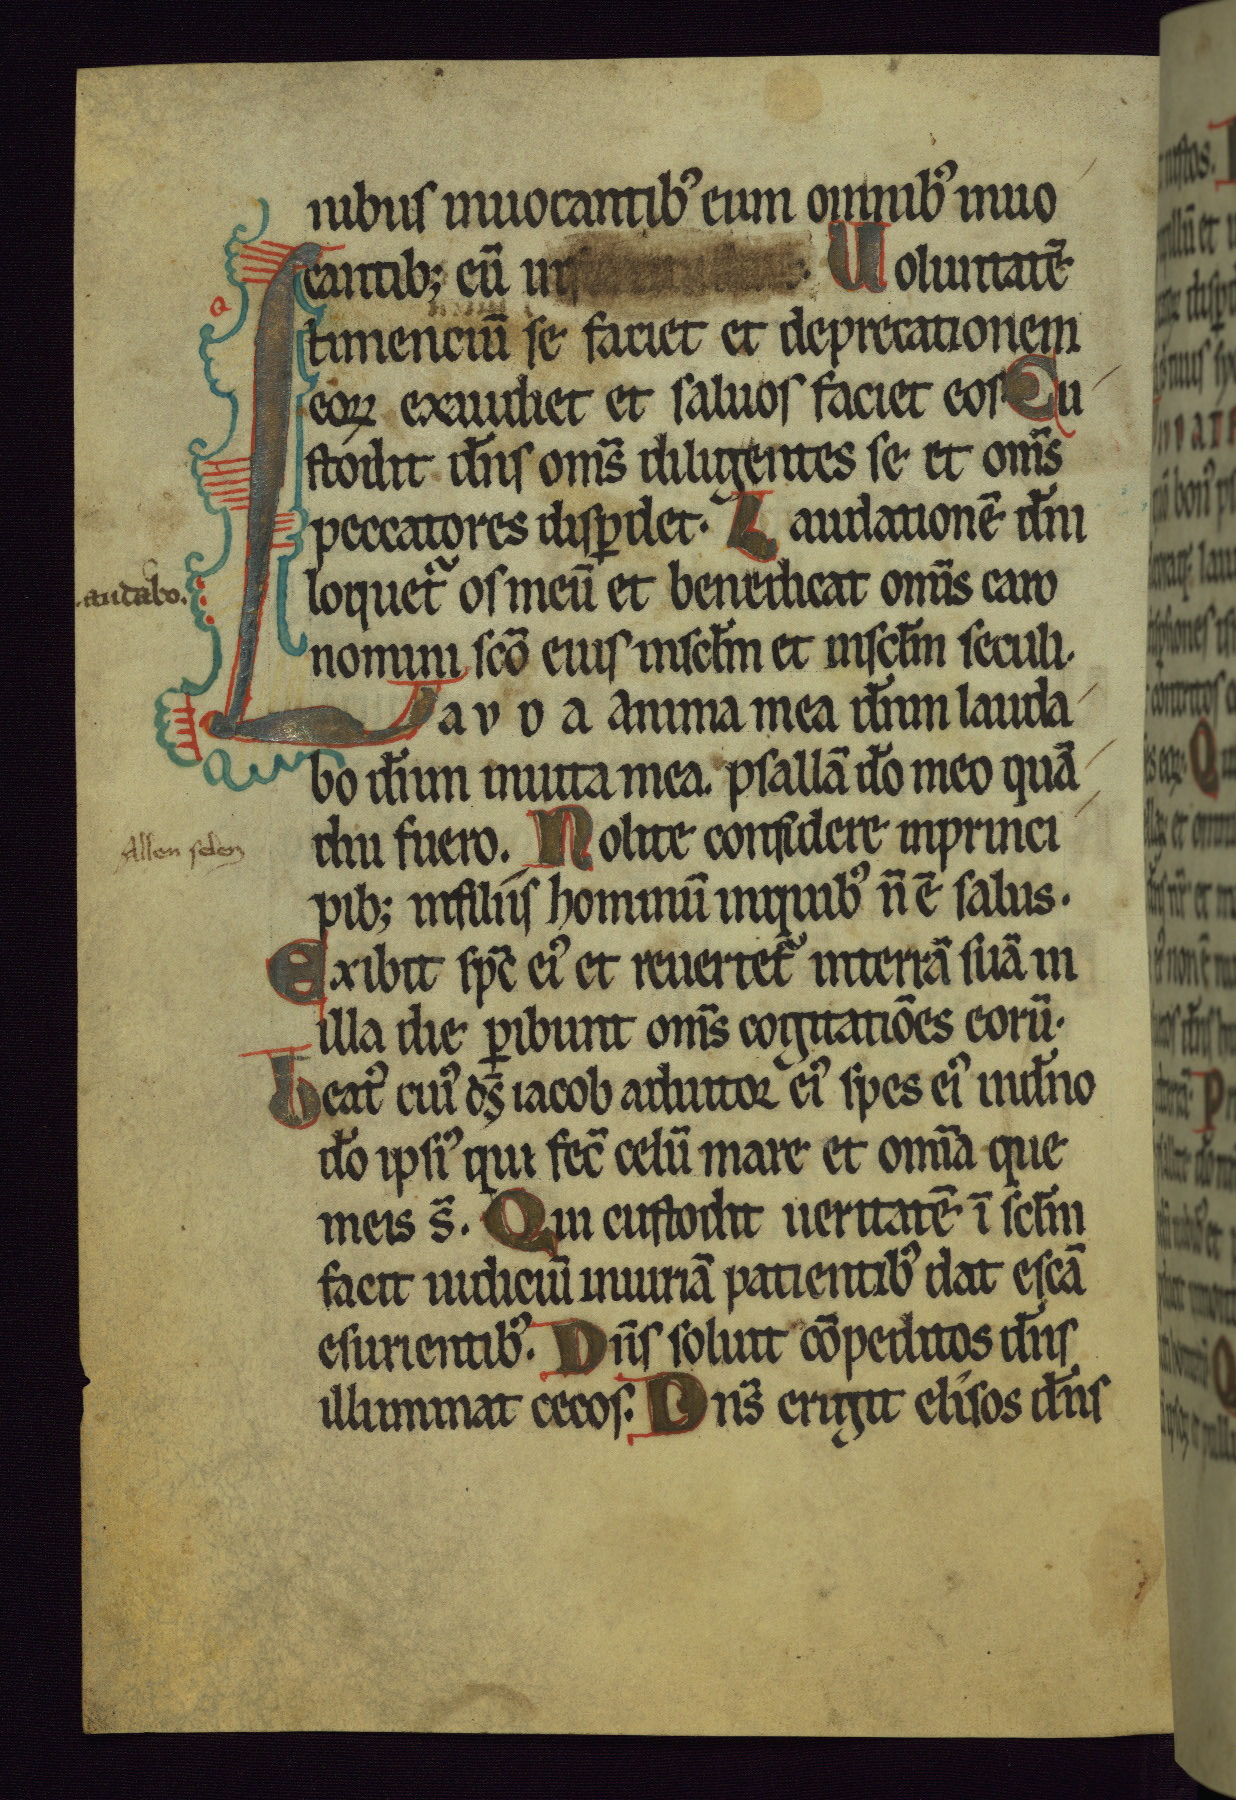 nibus inuocantib⁹ eum omnib⁹ inuo
cantib; eū in Uoluntatē
timenciū se faciet et deprecationem
eoꝝ exaudiet et saluos faciet eos Cu
stodit dn̄s om̄s diligentes se et om̄s
peccatores disꝑdet. Laudationē dn̄i
antabo.
loquet᷑ os meū et benedicat omīs caro
nomini scō eius insclm̄ et insclm̄ seculi.
Lavda anima mea dn̄m lauda
bo dn̄m inuita mea. psallā dō meo quā
diu fuero. Nolite confidere inprinci
Allen selen
pib; infiliis hominū inquib⁹ n̄ ē salus.
Exibit spc̄ ei⁹ et reuertet᷑ interrā suā in
illa die ꝑibunt om̄s cogitatiōes eorū.
beat⁹ cui⁹ ds̄ iacob adiutor ei⁹ spes ei⁹ indn̄o
dō ipsi⁹ qui fec̄ celū mare et omīa que
ineis s̄. Qui custodit ueritatē ī sclm̄
facit iudiciū iniuriā patientib⁹ dat escā
esurientib⁹. Dn̄s soluit cōpeditos dn̄s
illuminat cecos. Dn̄s erigit elisos dn̄s